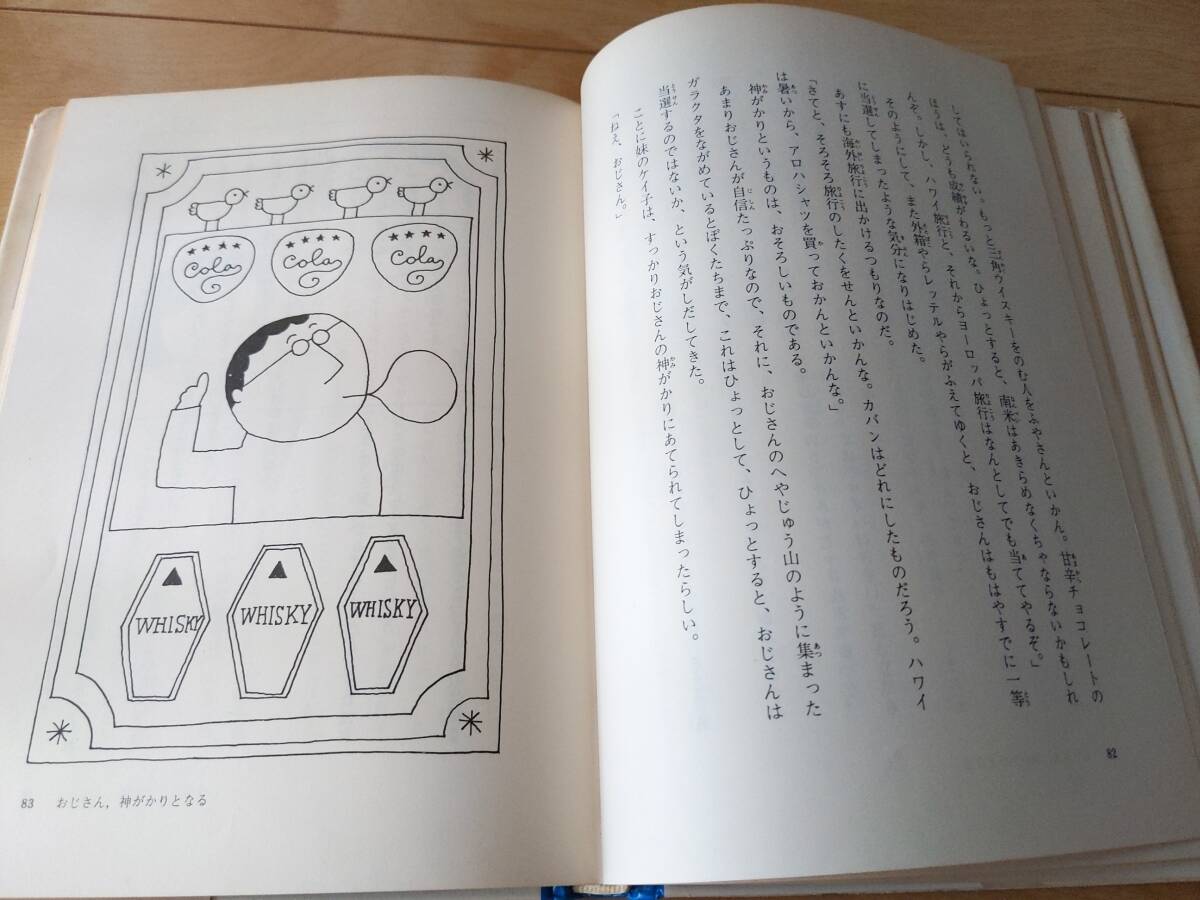 してはいられない。もっと三角ウイスキーをのむ人をふやさんといかん。甘辛チョコレートの
ほうは、どうも成績がわるいな。ひょっとすると、南米はあきらめなくちゃならないかもしれ
んぞ。しかし、ハワイ旅行と、それからヨーロッパ旅行はなんとしてでも当ててやるぞ。」
そのようにして、また外箱やらレッテルやらがふえてゆくと、おじさんはもはやすでに一等
に当選してしまったような気分になりはじめた。
あすにも海外旅行に出かけるつもりなのだ。
「さてと、そろそろ旅行のしたくをせんといかんな。カバンはどれにしたものだろう。ハワイ
は暑いから、アロハシャツを買っておかんといかんな。」
神がかりというものは、おそろしいものである。
あまりおじさんが自信たっぷりなので、それに、おじさんのへやじゅう山のように集まった
ガラクタをながめているとぼくたちまで、これはひょっとして、ひょっとすると、おじさんは
当選するのではないか、という気がしだしてきた。
ことに妹のケイ子は、すっかりおじさんの神がかりにあてられてしまったらしい。
「ねえ、おじさん。」
82
Cola
Cola
Cola
WHISKY
WHISKY
WHISKY
83 おじさん，神がかりとなる